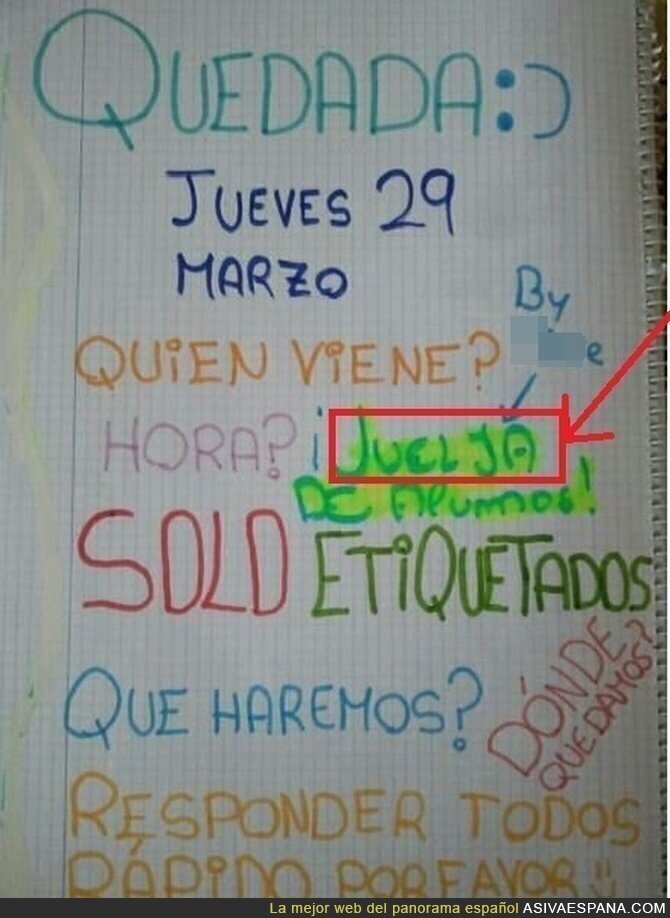 QUEDADA:)
JUEVES 29
MARZO
By
e
QUIEN VIENE?
HORA? ¡JUELJA
DE Alumnos!
SOLO ETIQUETADOS
QUE HAREMOS?
DÓNDE
QUEDAMOS?
RESPONDER TODOS
RÁPIDO POR FAVOR :)
La mejor web del panorama español ASIVAESPANA.COM